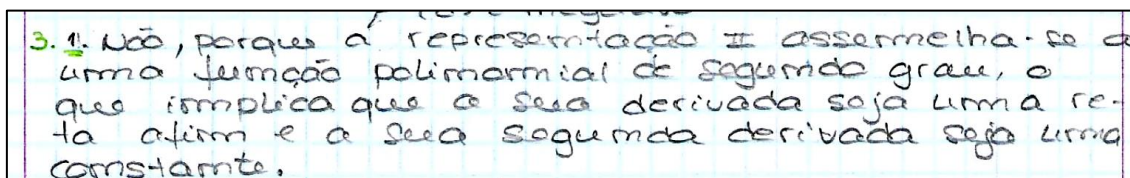 3. 1. Não, porque a representação II assemelha-se a
uma função polinomial de segundo grau, o
que implica que a sua derivada seja uma re-
ta afim e a sua segunda derivada seja uma
constante.